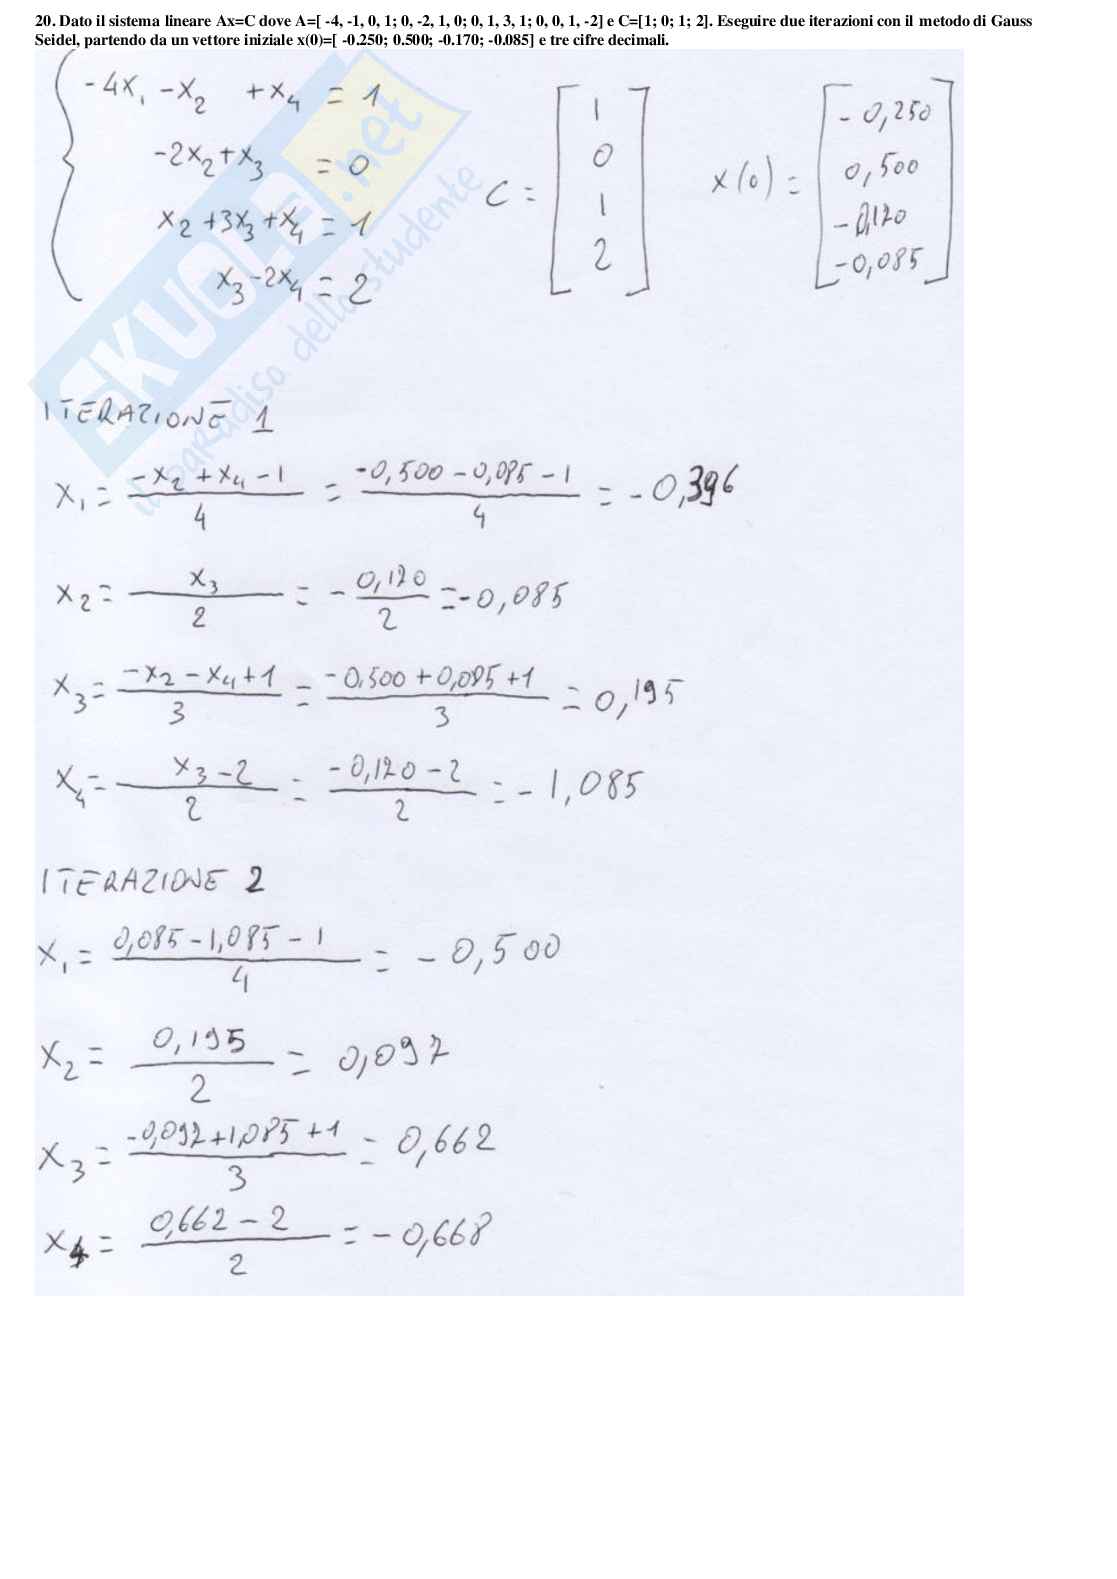 20. Dato il sistema lineare Ax=C dove A=[ -4, -1, 0, 1; 0, -2, 1, 0; 0, 1, 3, 1; 0, 0, 1, -2] e C=[1; 0; 1; 2]. Eseguire due iterazioni con il metodo di Gauss
Seidel, partendo da un vettore iniziale x(0)=[ -0.250; 0.500; -0.170; -0.085] e tre cifre decimali.
-4x₁ -x₂ +x₄ = 1
-2x₂+x₃ = 0
x₂+3x₃+x₄ = 1
x₃-2x₄ = 2
C = [1 0 1 2]
x(0) = [-0,250 0,500 -0,170 -0,085]
SKUOLA.net
il paradiso dello studente
ITERAZIONE 1
x₁ = (-x₂+x₄-1)/4 = (-0,500-0,085-1)/4 = -0,396
x₂ = x₃/2 = -0,170/2 = -0,085
x₃ = (-x₂-x₄+1)/3 = (-0,500+0,085+1)/3 = 0,195
x₄ = (x₃-2)/2 = (-0,170-2)/2 = -1,085
ITERAZIONE 2
x₁ = (0,085-1,085-1)/4 = -0,500
x₂ = 0,195/2 = 0,097
x₃ = (-0,097+1,085+1)/3 = 0,662
x₄ = (0,662-2)/2 = -0,668